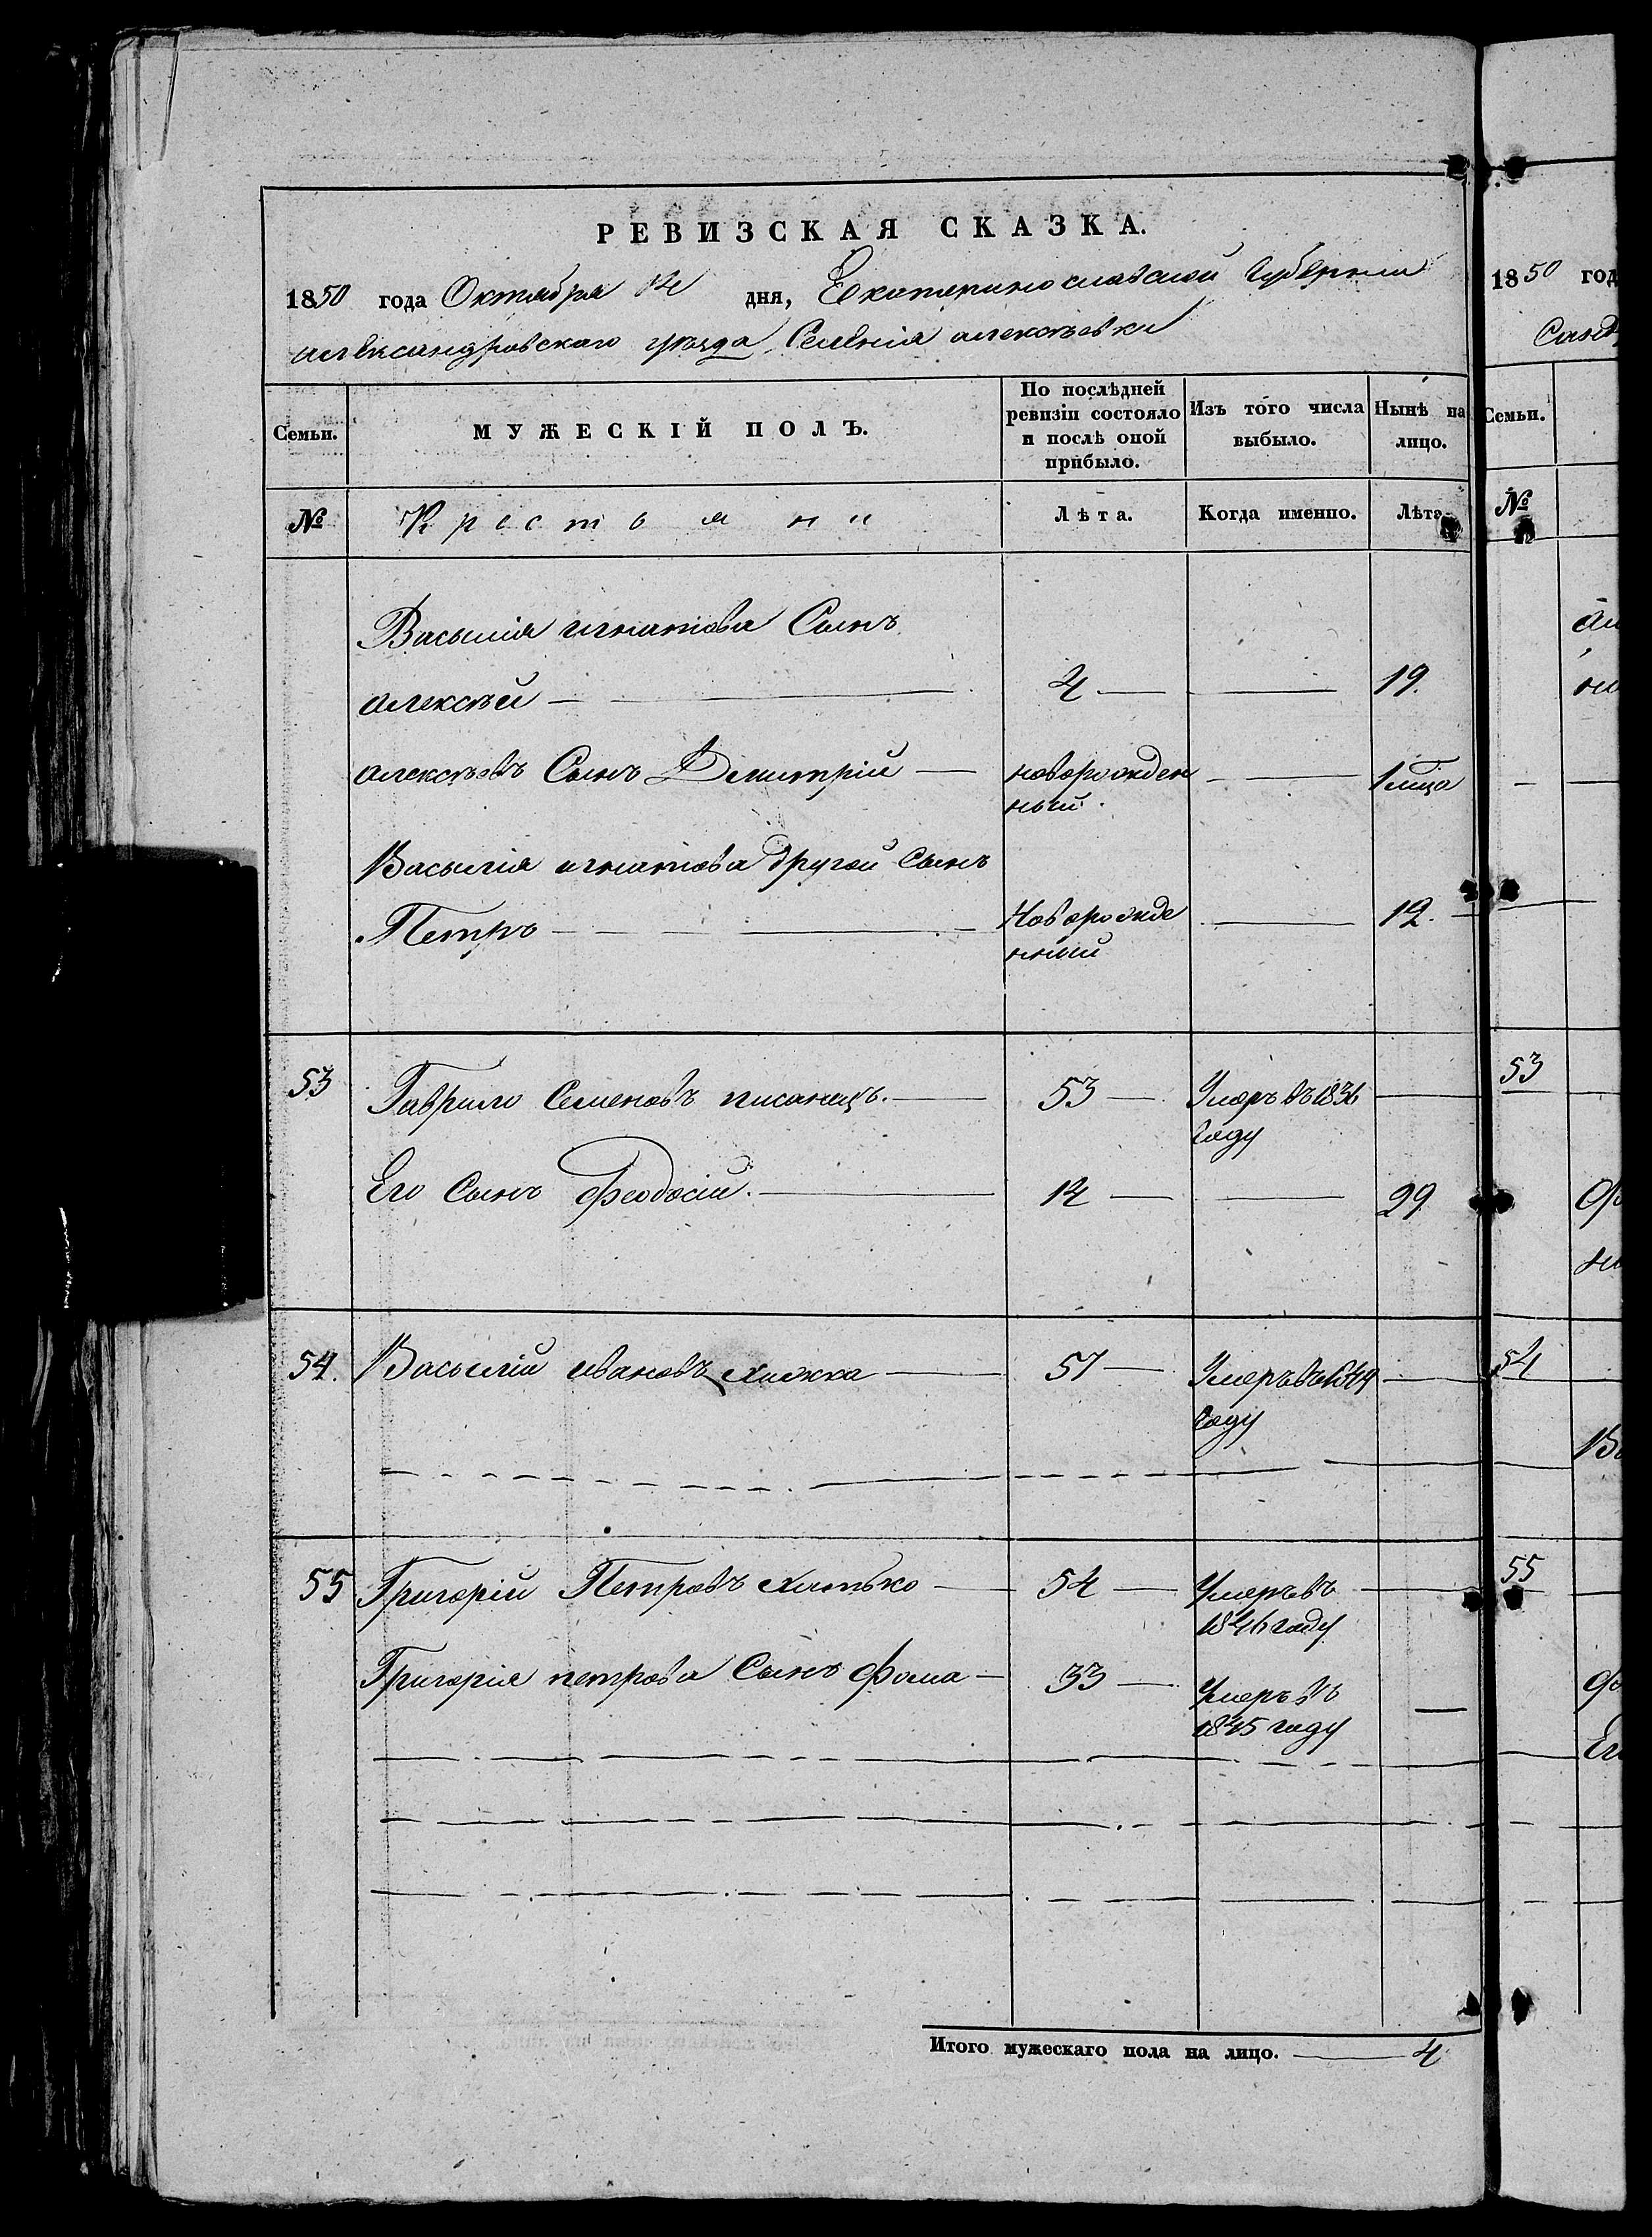 РЕВИЗСКАЯ СКАЗКА.
1850 года Октября 14 дня, Екатеринославской Губернии
александровскаго уѣзда Селенія алексѣевки
Семьи.
МУЖЕСКІЙ ПОЛЪ.
По послѣдней
ревизіи состояло
и послѣ оной
прибыло.
Изъ того числа
выбыло.
Нынѣ на
лицо.
№ Крестьяни Лѣта. Когда именно. Лѣта
Василія игнатова Сынъ
алексѣй 4 19.
алексѣевъ Сынъ Дмитрій новорожден
ный.
Василія игнатова другой Сынъ
Петръ Новорожде 12.
нный
53 Гаврило Семеновъ писанецъ. 53 Умеръ въ 1836
Году
Его Сынъ Феодосій. 14 29
54. Василій ивановъ 57
Году
55 Григорій Петровъ 54 Умеръ въ
1846 году
Григорія петрова Сынъ фома 33 Умеръ въ
1845 году
Итого мужескаго пола на лицо. 4
1850 год
Семьи.
№
53
54
55